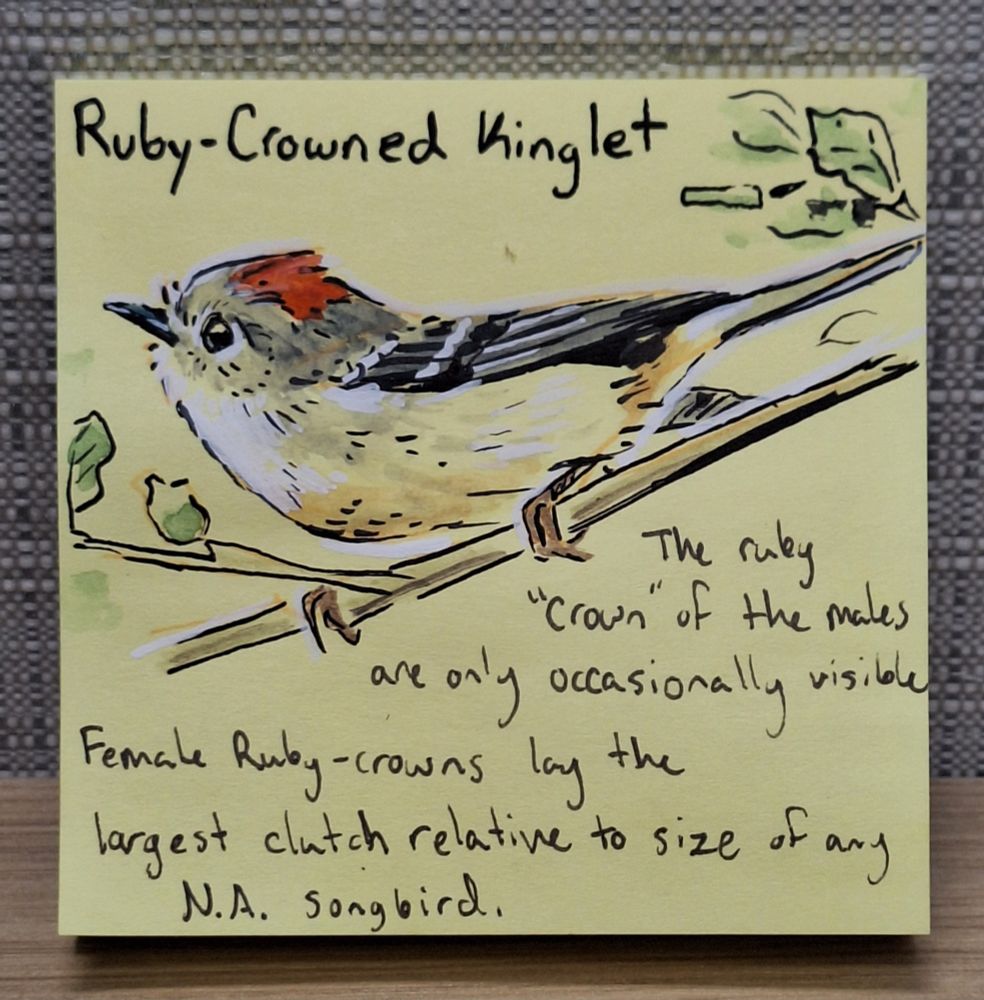 Ruby-Crowned Kinglet
The ruby
"crown" of the males
are only occasionally visible
Female Ruby-crowns lay the
largest clutch relative to size of any
N.A. songbird.